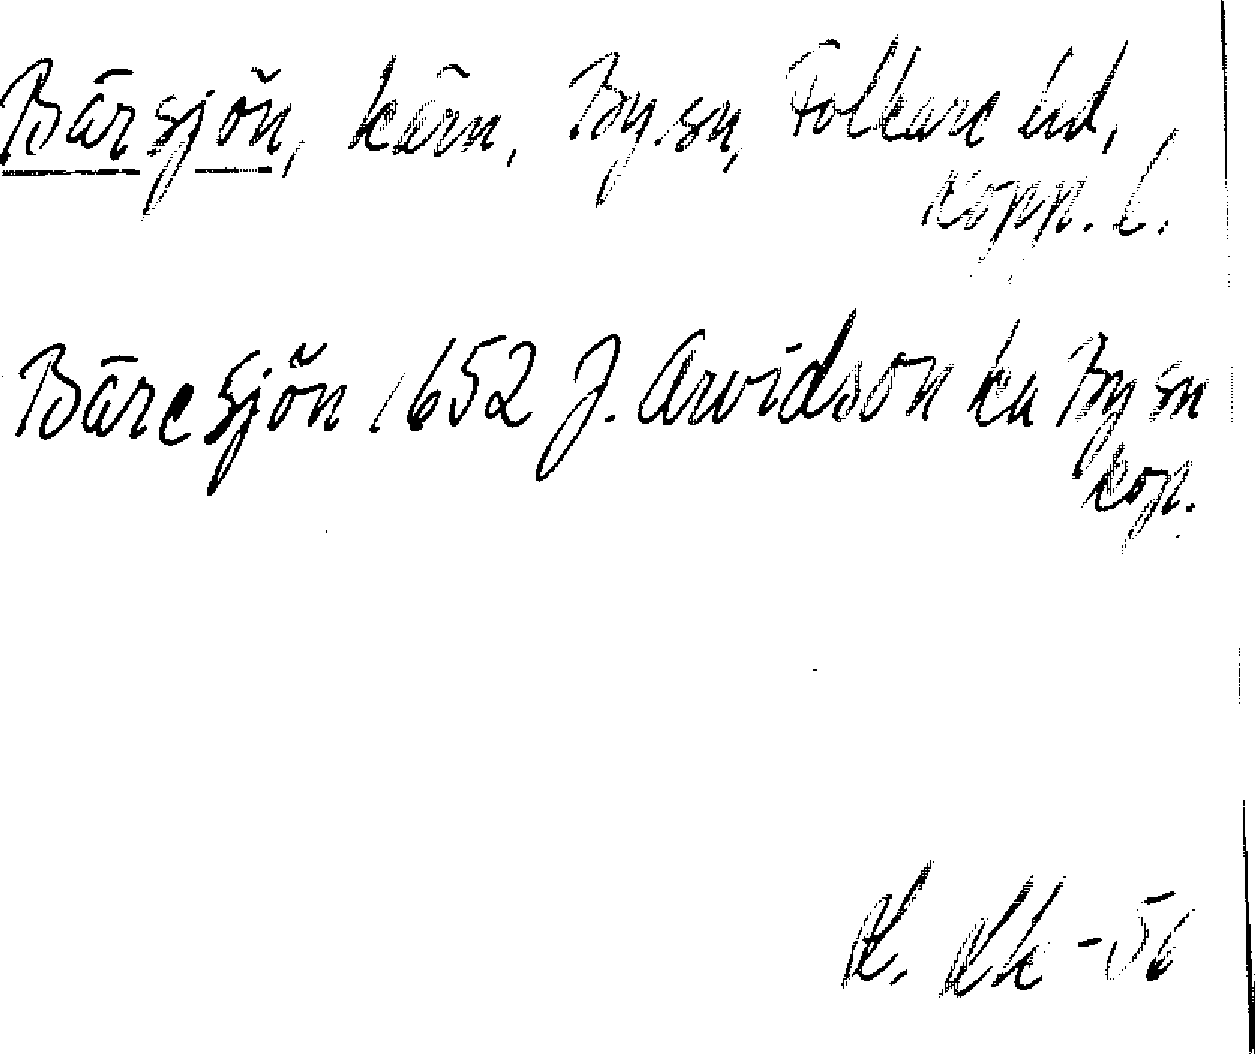 Bärsjön, tärn, By sn, Folkare hd,
Kopp. l.
Bäresjön 1652 J. Arvidson ka By sn
kop.
-56